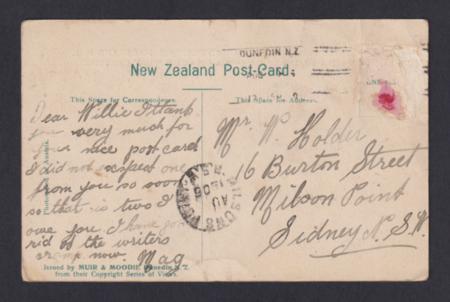 DUNEDIN N.Z.
New Zealand Post-Card.
This Space for Correspondence.
Dear Willie I thank
you very much for
your nice post card
I did not expect one
from you so soon
so that is two I
owe you I have got
rid of the writers
cramp now. Mag
Mr. W. Holder
16 Burton Street
Milson Point
Sidney N. S. W.
MILSONS
AU
Issued by MUIR & MOODIE, Dunedin N.Z.
from their Copyright Series of Views.